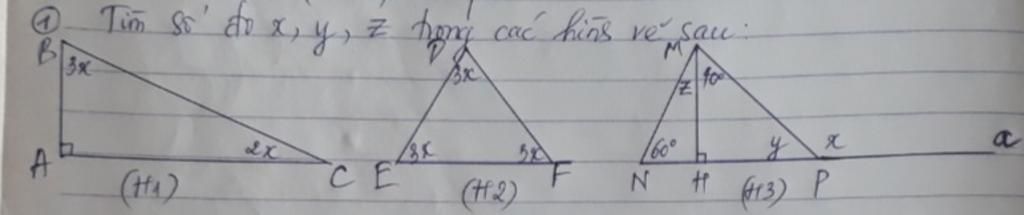 ① Tìm số đo x, y, z trong các hình vẽ sau:
B D M
3x 3x z 40°
A 2x C E 3x 3x F N 60° H y P x a
(H1) (H2) (H3)